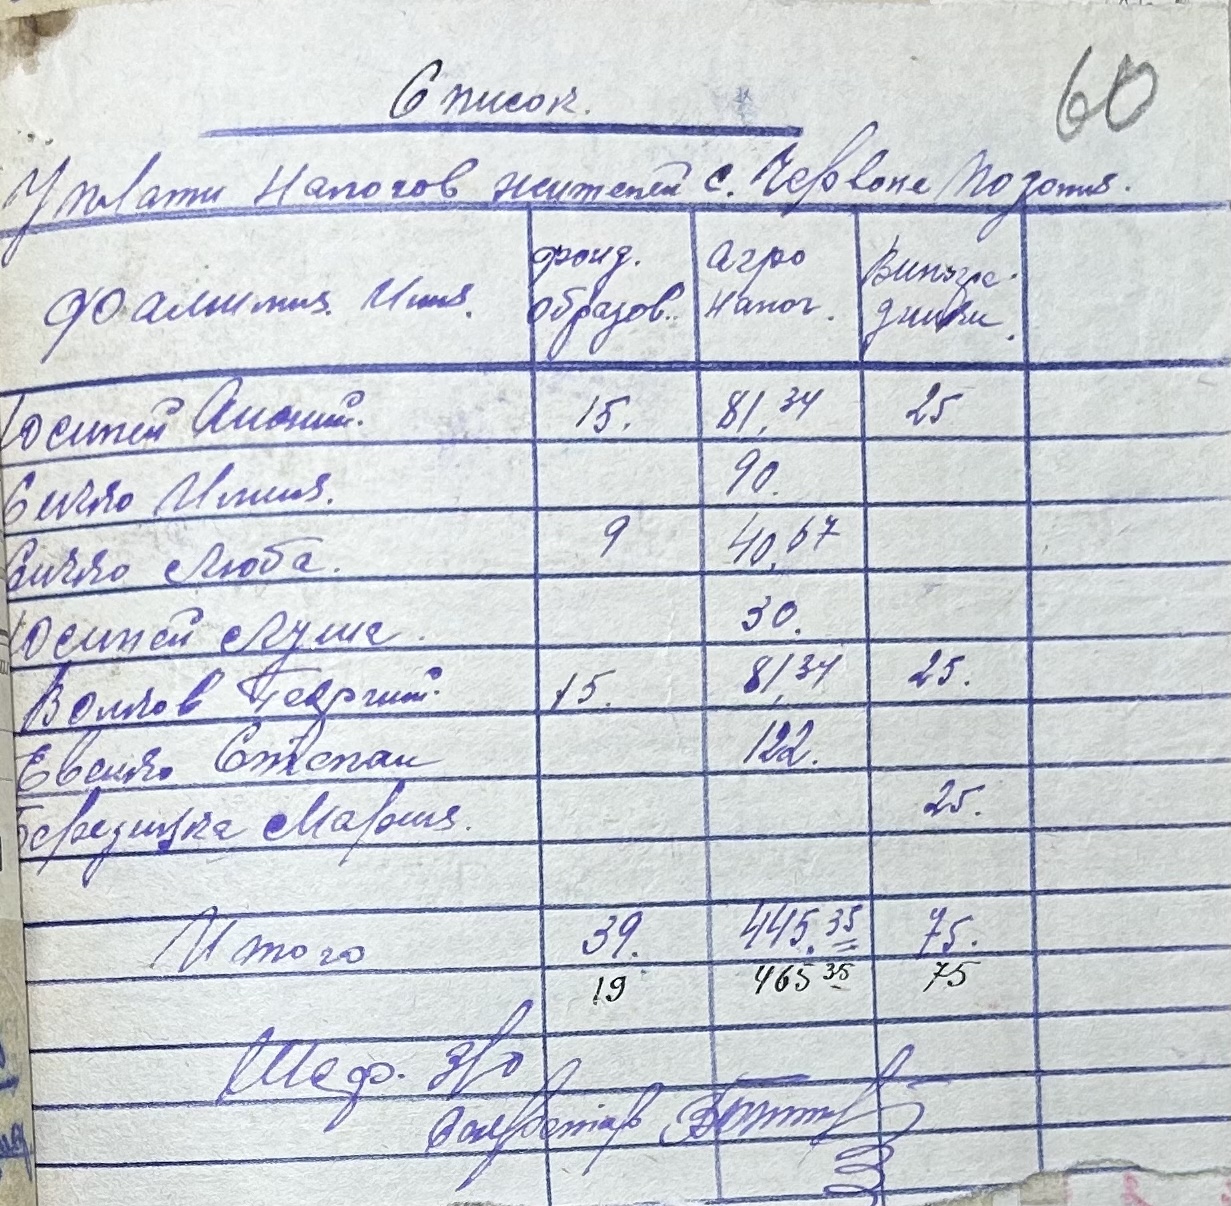 60
Список.
Уплати Налогов жителей с. Червона Поляна.
Фамилия. Имя. фонд. образов. Агро налог. Виногра- дники.
Юсипей 15. 81,34 25
Сичко Илия. 90.
Сичко Люба. 9 40,67
Юсипей Луша. 30.
Волков Георгий. 15. 81,34 25.
Евсико Степан 122.
Мария. 25.
Итого 39. 445.35 75.
19 465 35 75
Шеф.
Секретарь